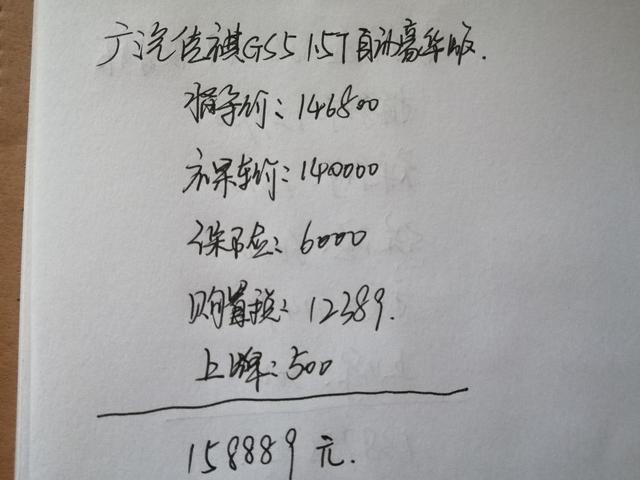 广汽传祺GS5 1.5T自动豪华版.
指导价：146800
裸车价：140000
保险：6000
购置税：12389.
上牌：500
158889元.